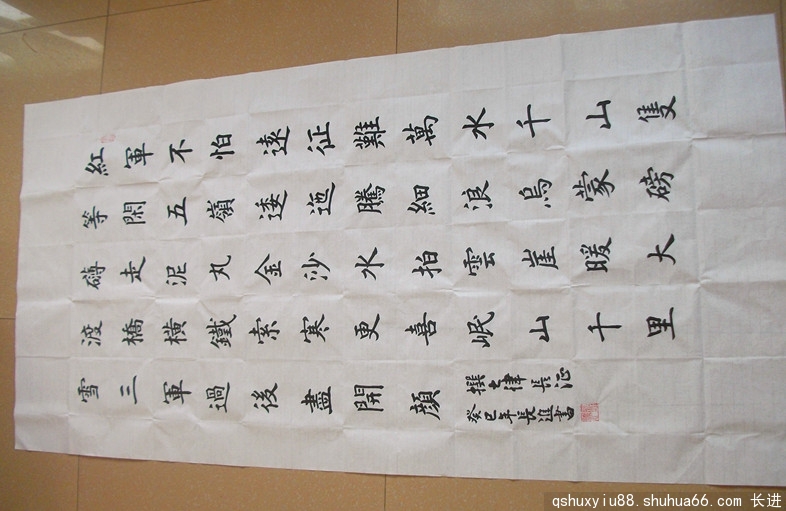 紅軍不怕遠征難萬水千山隻
等閑五嶺逶迤騰細浪烏蒙磅
礴走泥丸金沙水拍雲崖暖大
渡橋橫鐵索寒更喜岷山千里
雪三軍過後盡開顏
撰七律長征
癸巳年長進書
qshuxyiu88.shuhua66.com 长进